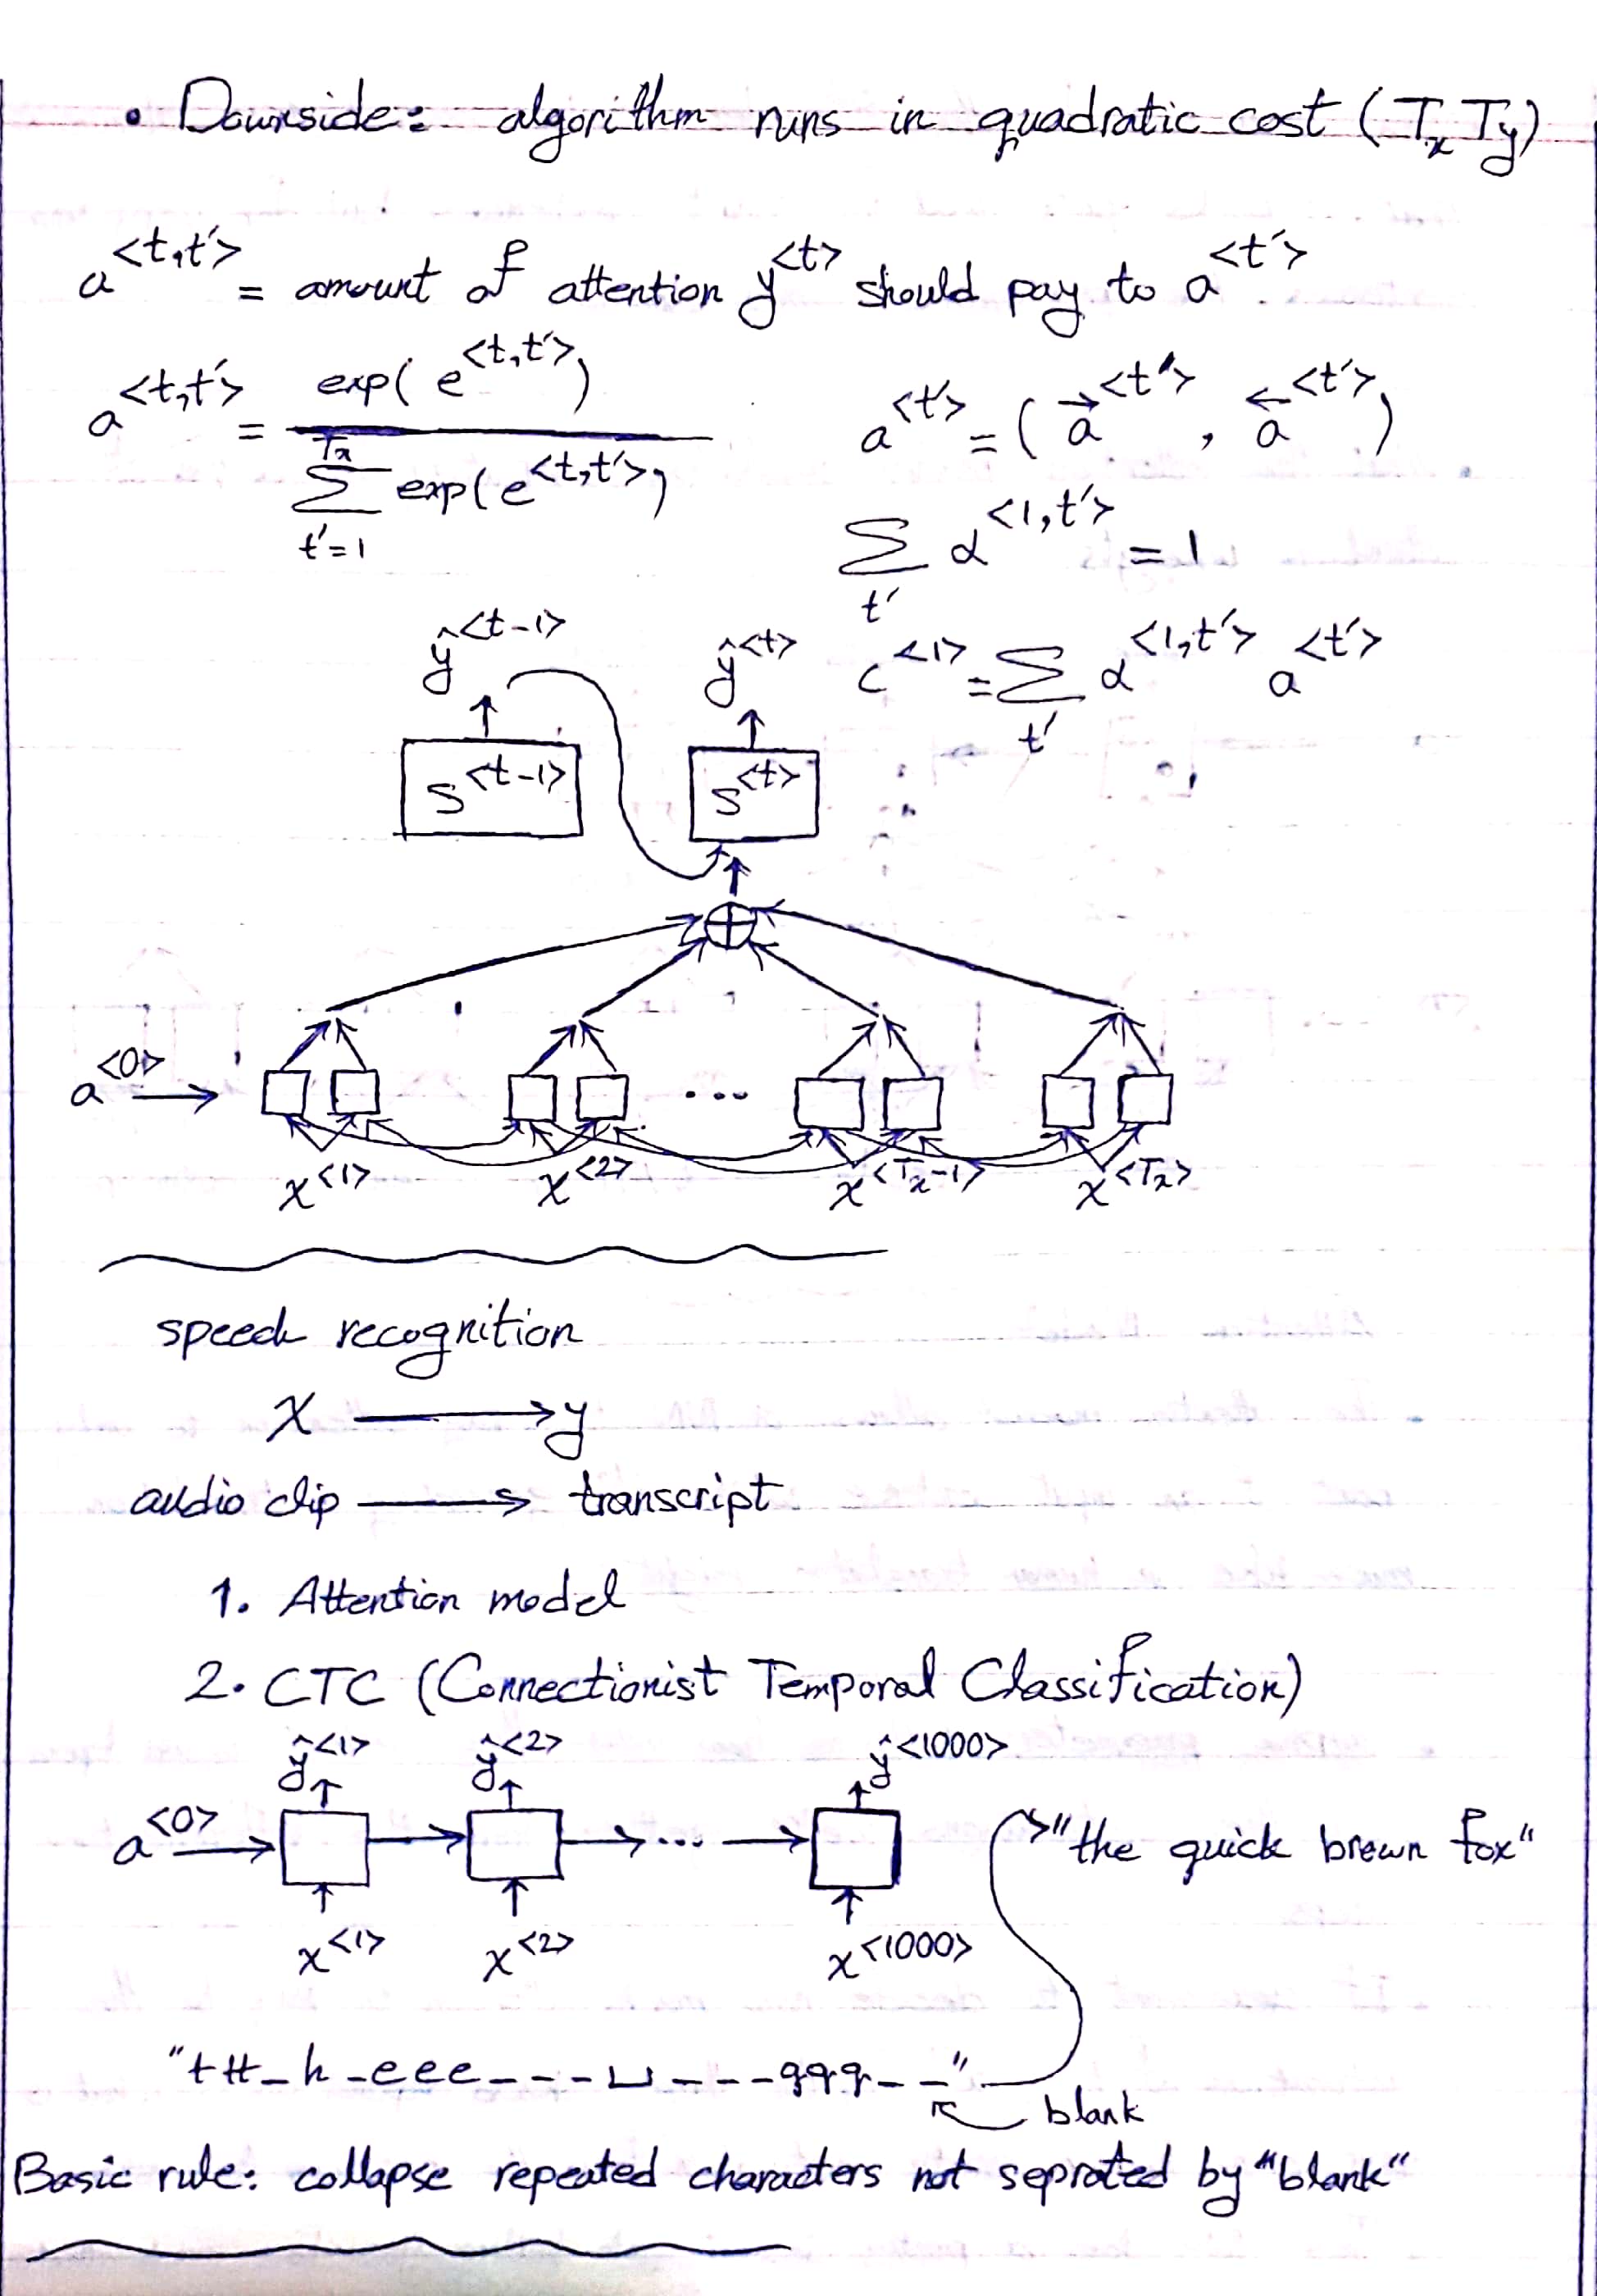 • Downside: algorithm runs in quadratic cost (Tx Ty)
a<t,t'> = amount of attention y<t> should pay to a<t'>
a<t,t'> = exp( e<t,t'> )
Tx
∑ exp( e<t,t'> )
t'=1
a<t'> = ( →a<t'> , ←a<t'> )
∑ α<1,t'> = 1
t'
c<1> = ∑ α<1,t'> a<t'>
t'
ŷ<t-1> ŷ<t>
S<t-1> S<t>
a<0> → ...
x<1> x<2> x<Tx-1> x<Tx>
speech recognition
X → y
audio clip → transcript
1. Attention model
2. CTC (Connectionist Temporal Classification)
ŷ<1> ŷ<2> ŷ<1000>
a<0> → → → ... → "the quick brown fox"
x<1> x<2> x<1000>
"ttt_h_eee___⊔___qqq__"
blank
Basic rule: collapse repeated characters not seprated by "blank"